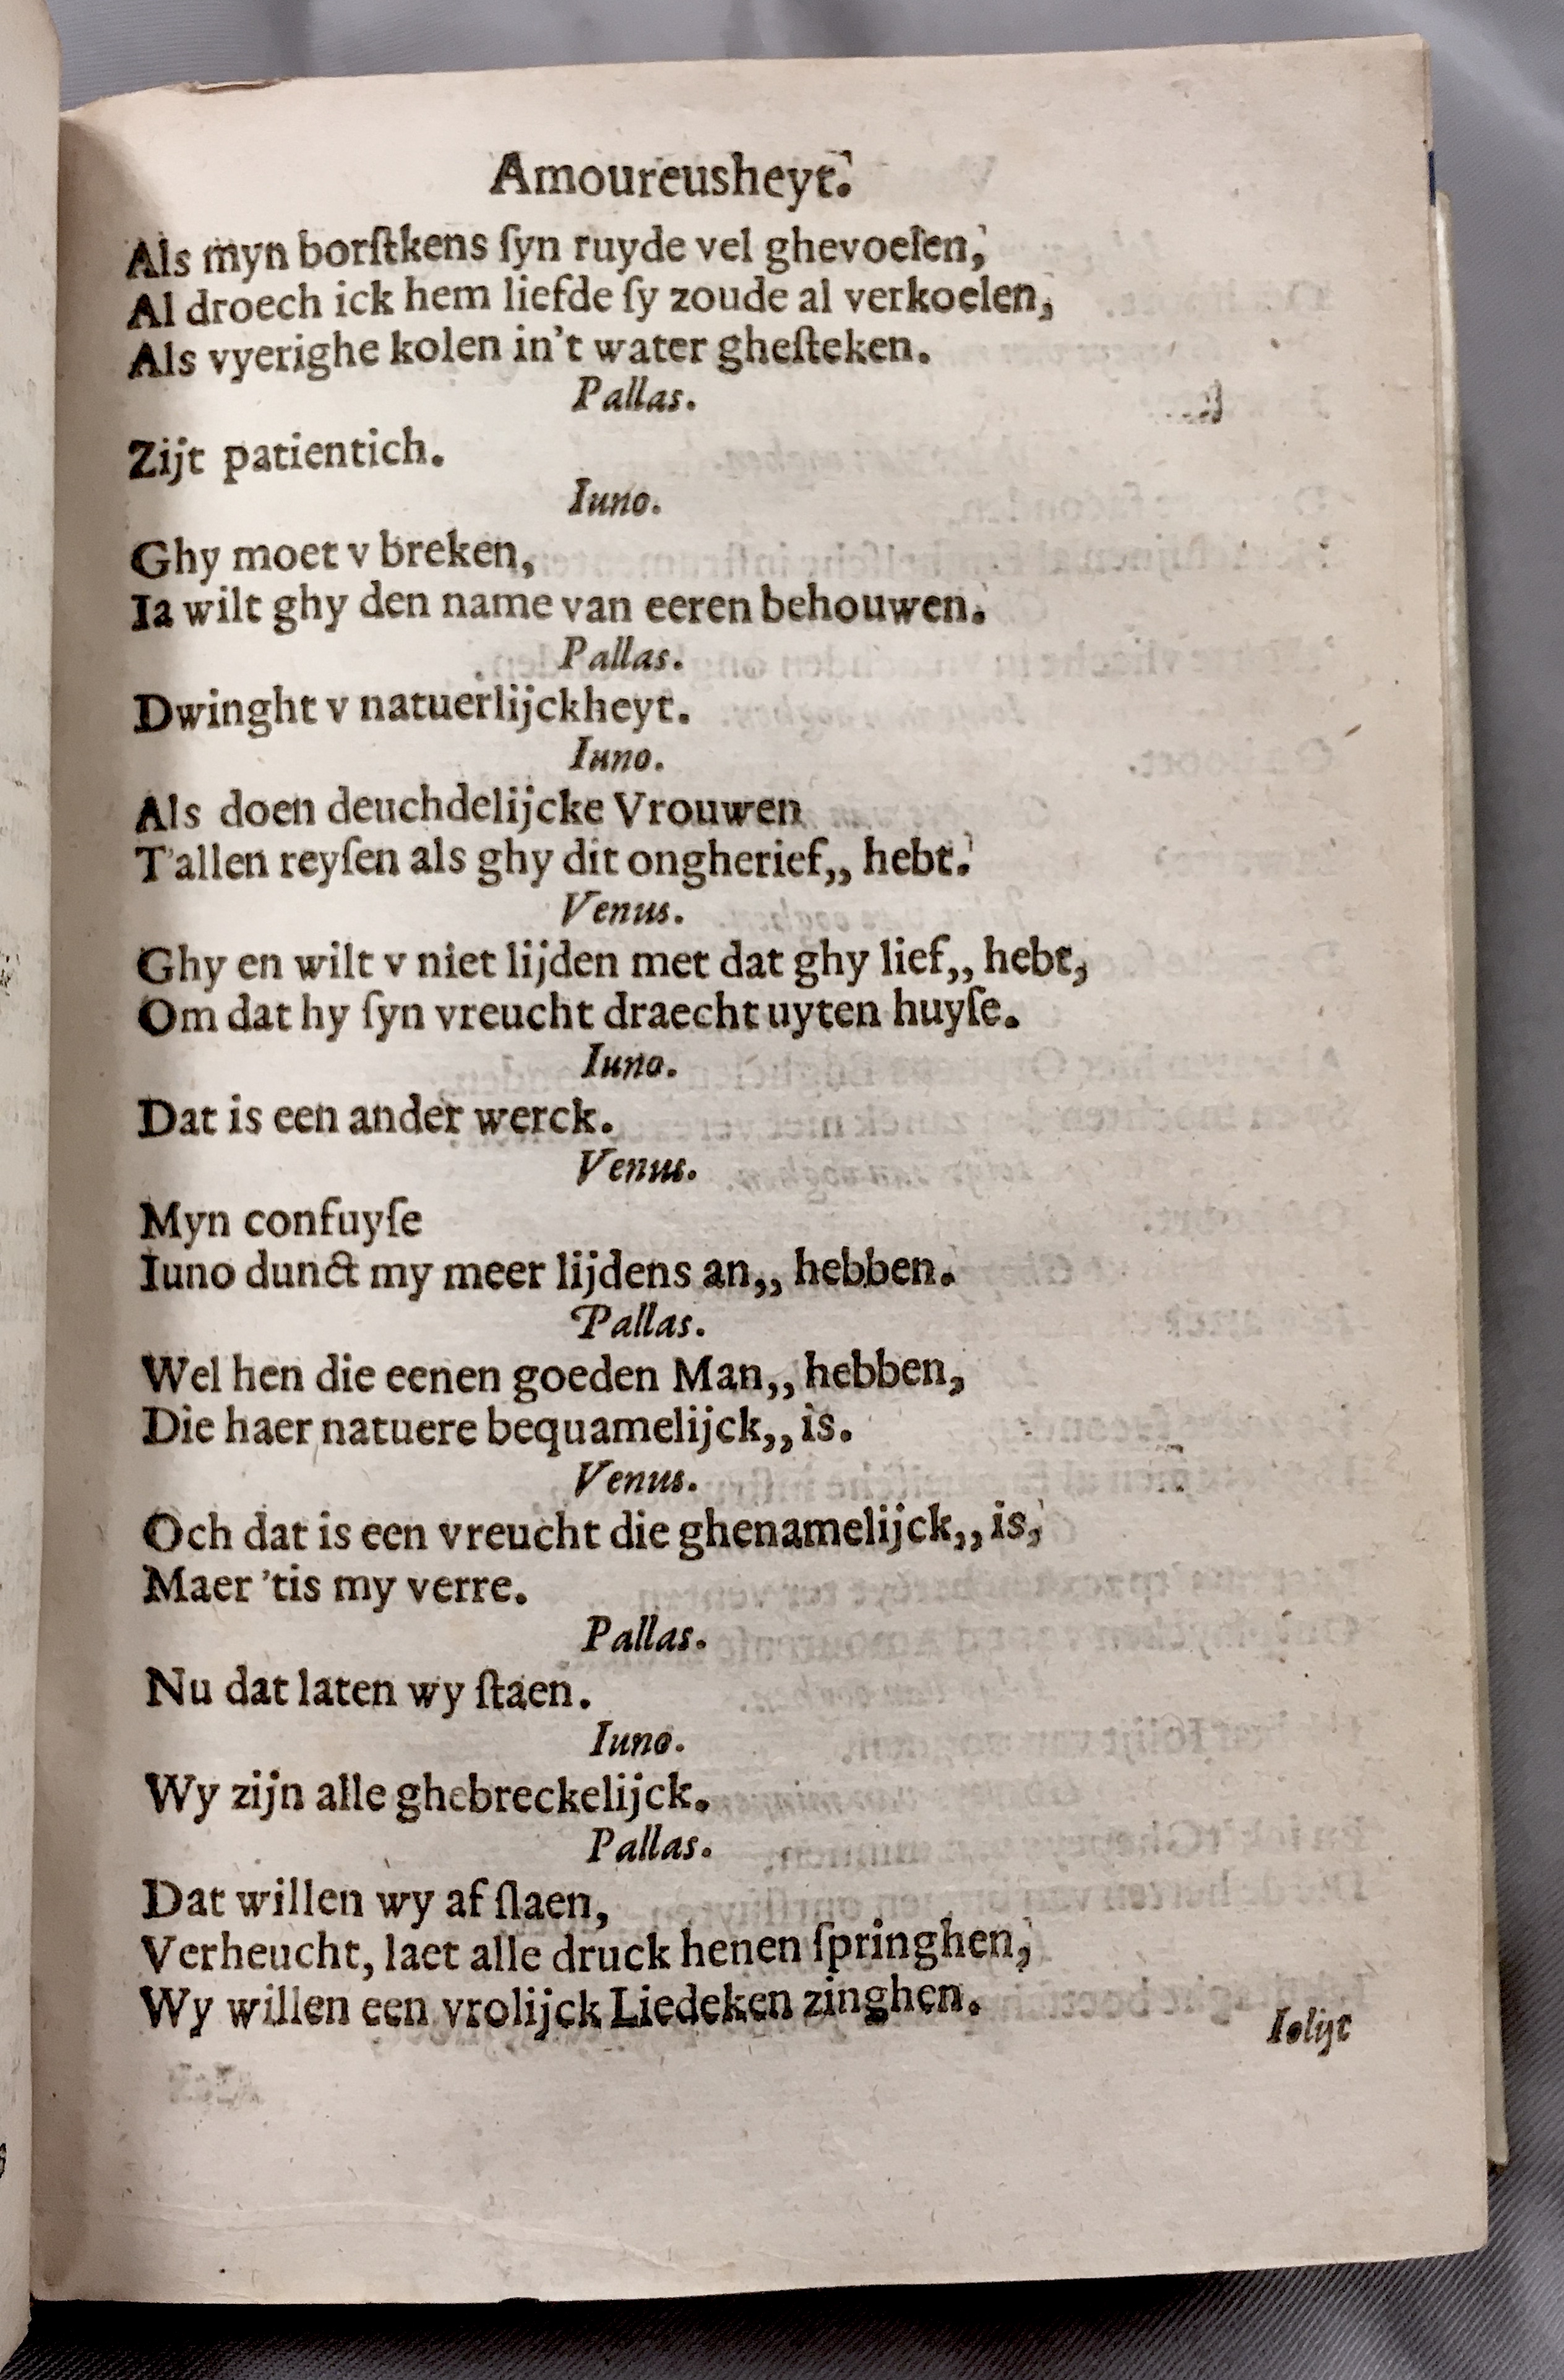 Amoureusheyt.
Als myn borſtkens ſyn ruyde vel ghevoelen,
Al droech ick hem liefde ſy zoude al verkoelen,
Als vyerighe kolen in't water gheſteken.
Pallas.
Zijt patientich.
Iuno.
Ghy moet v breken,
Ia wilt ghy den name van eeren behouwen.
Pallas.
Dwinght v natuerlijckheyt.
Iuno.
Als doen deuchdelijcke Vrouwen
T'allen reyſen als ghy dit ongherief,, hebt.
Venus.
Ghy en wilt v niet lijden met dat ghy lief,, hebt,
Om dat hy ſyn vreucht draecht uyten huyſe.
Iuno.
Dat is een ander werck.
Venus.
Myn confuyſe
Iuno dunct my meer lijdens an,, hebben.
Pallas.
Wel hen die eenen goeden Man,, hebben,
Die haer natuere bequamelijck,, is.
Venus.
Och dat is een vreucht die ghenamelijck,, is,
Maer 'tis my verre.
Pallas.
Nu dat laten wy ſtaen.
Iuno.
Wy zijn alle ghebreckelijck.
Pallas.
Dat willen wy af ſlaen,
Verheucht, laet alle druck henen ſpringhen,
Wy willen een vrolijck Liedeken zinghen.
Iolijt